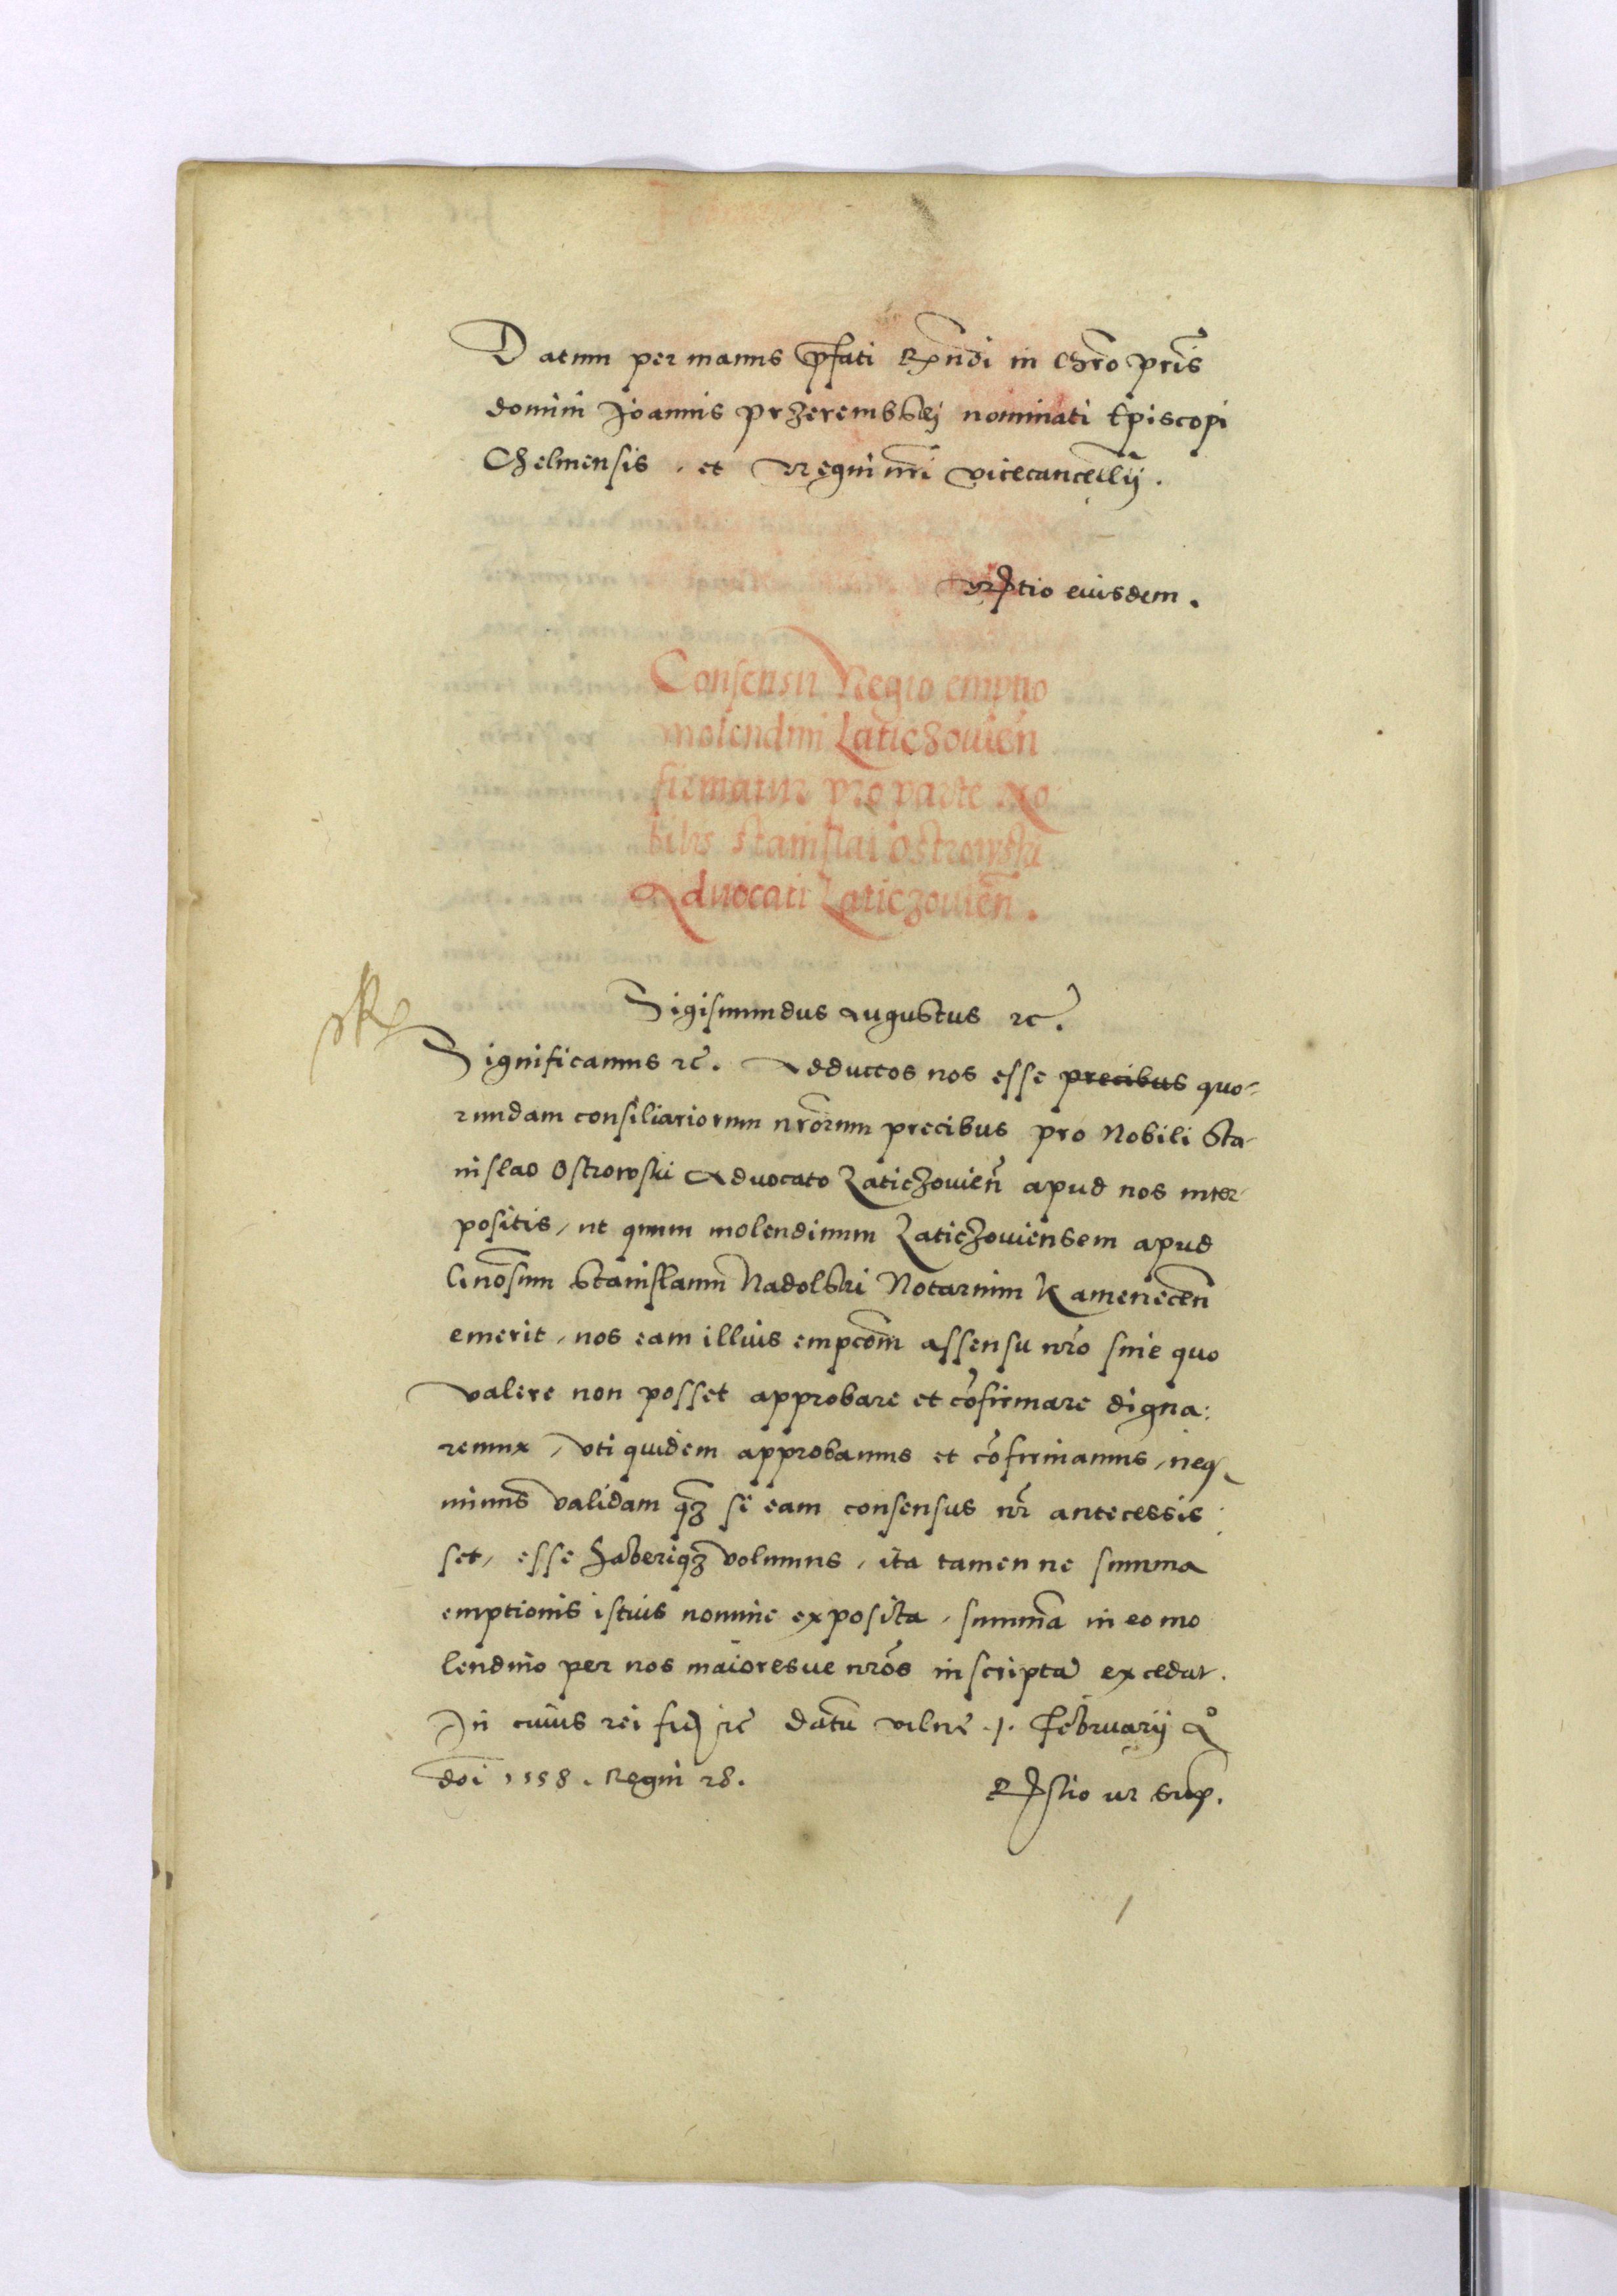 Datum per manus p̄fati Rx̄ndi in Chr̄o pr̄is
domini Joannis przerembskij nominati Episcopi
Chelmensis, et Regni nr̄i vicecancellīj.
Rl̄tio eiusdem.
Consensu Regio emptio
molendini Laticzouien̄
firmatur pro parte No
bilis Stanislai Ostrowski
Aduocati Laticzouien̄.
Sigismundus Augustus ꝛc̄.
Significamus ꝛc̄. Adductos nos esse precibus quo-
rundam consiliariorum nr̄orum precibus pro Nobili Sta-
nislao Ostrowski Aduocato Laticzouien̄ apud nos inter-
positis, ut quum molendinum Laticzouiensem apud
Gnōsum Stanislaum Nadolski Notarium Kamenecen̄
emerit, nos eam illius empcōm assensu nr̄o sine quo
valere non posset approbare et cōfirmare digna:
remur, vti quidem approbamus et cōfirmamus, neq
minus validam q̄ꝫ si eam consensus nr̄ antecessis
set, esse haberiqꝫ volumus, ita tamen ne summa
emptionis istius nomine exposita, summā in eo mo
lendino per nos maioresue nr̄os inscriptā excedat.
In cuius rei fid ꝛc̄ datū vilne .1. februarij Aº
dōi 1558. Regni 28.
Rl̄tio ut sup̄.